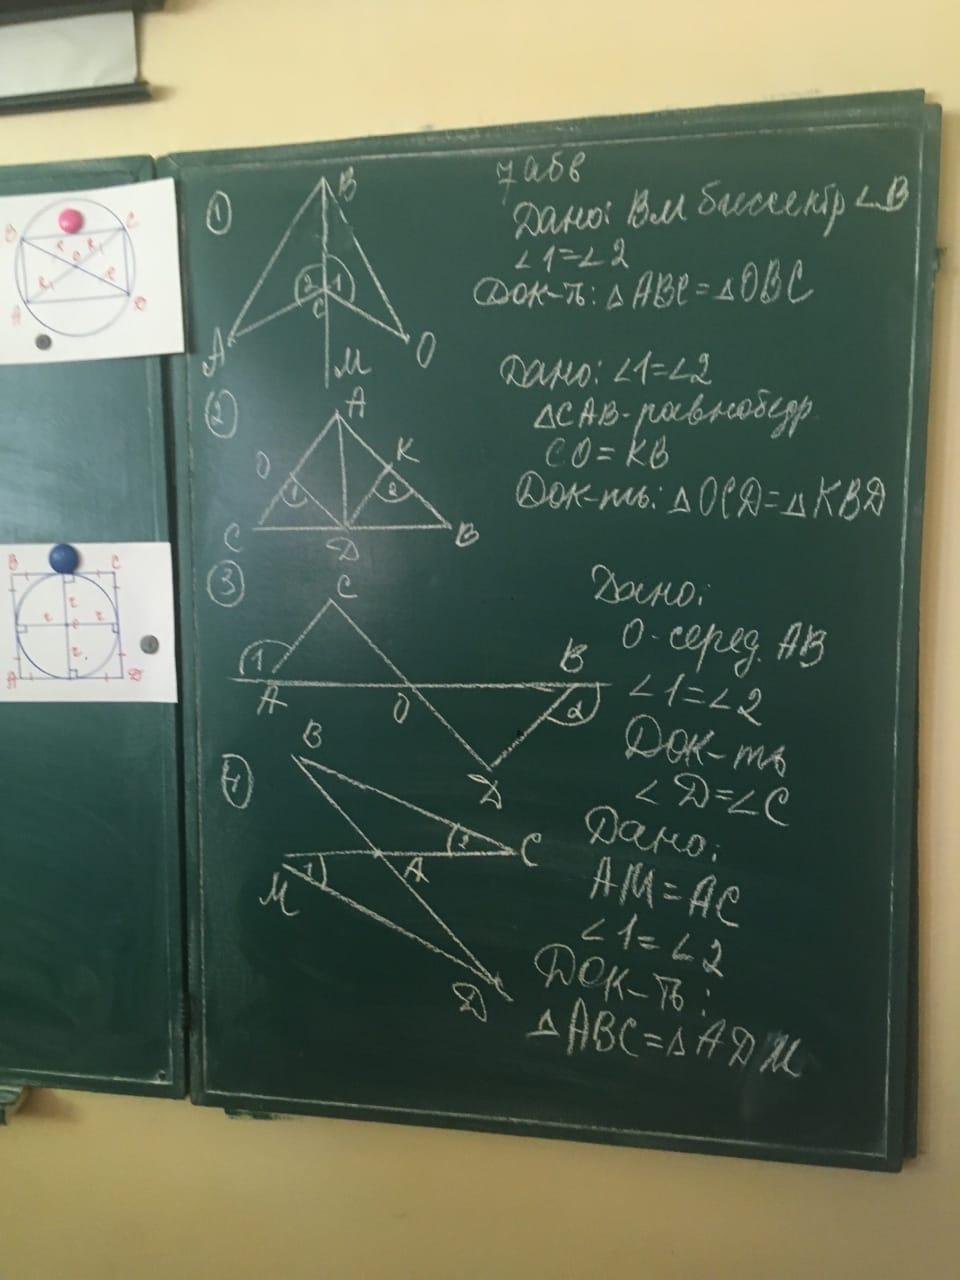 7 абв
1
B
2 1
C
A
O
M
Дано: BM биссектр ∠B
∠1=∠2
Док-ть: △ABC=△OBC
2
A
O
K
1
2
C
D
B
Дано: ∠1=∠2
△CAB-равнобедр
CO=KB
Док-ть: △OCD=△KBD
3
C
1
A
O
B
2
D
Дано:
O-серед. AB
∠1=∠2
Док-ть
∠D=∠C
4
B
2
C
A
M
1
D
Дано:
AM=AC
∠1=∠2
Док-ть:
△ABC=△ADM
B
C
O
A
D
B
C
A
D